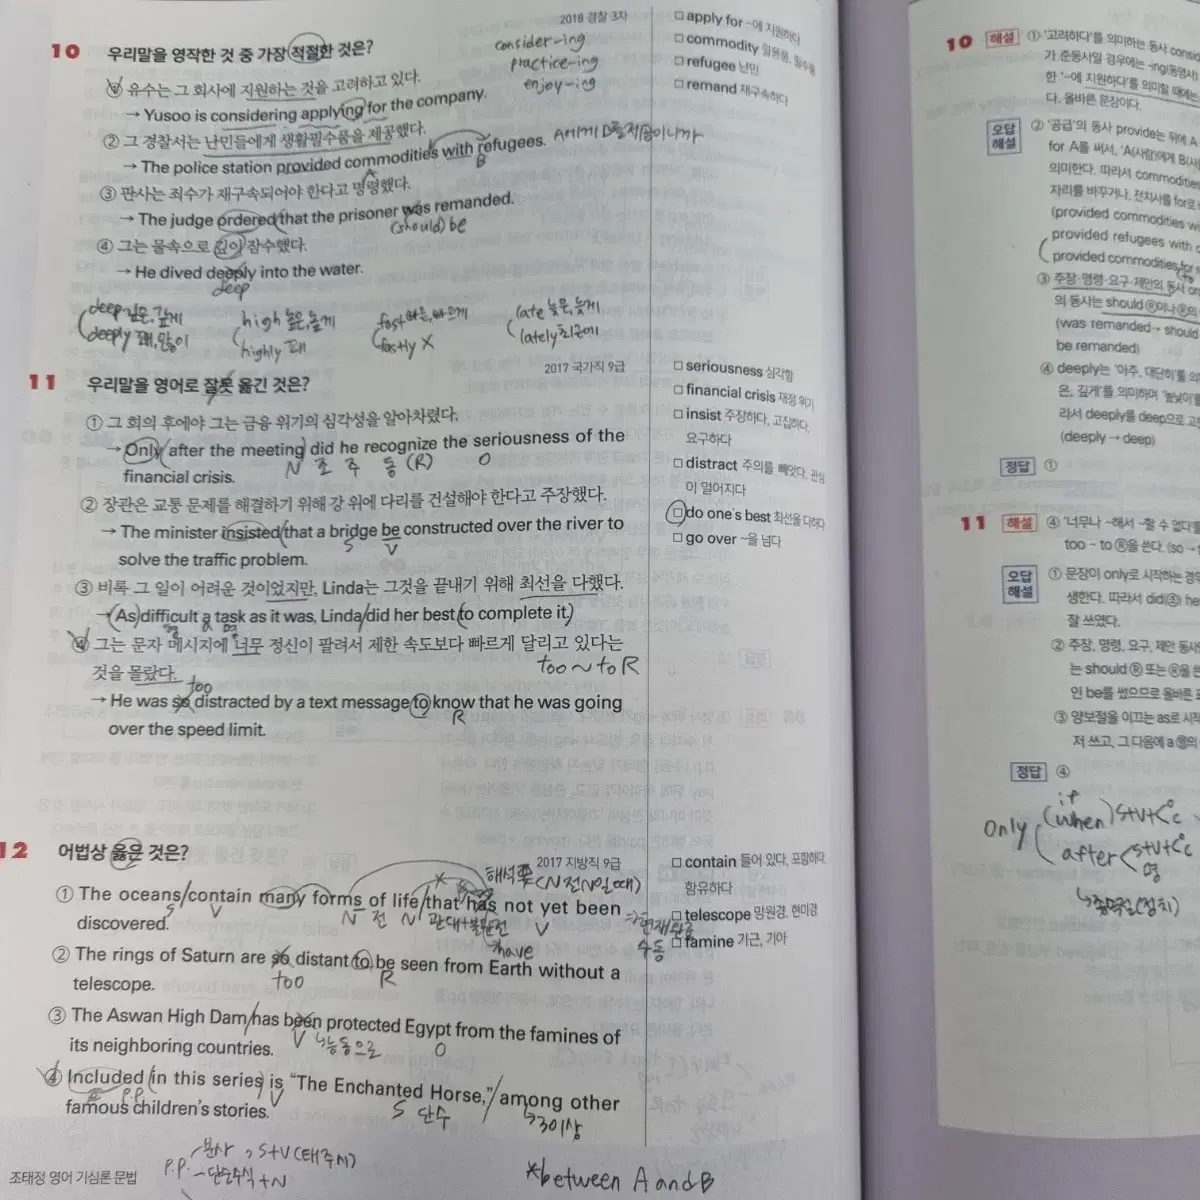 2018 경찰 3차
10 우리말을 영작한 것 중 가장 적절한 것은?
consider-ing
practice-ing
enjoy-ing
① 유수는 그 회사에 지원하는 것을 고려하고 있다.
→ Yusoo is considering applying for the company.
② 그 경찰서는 난민들에게 생활필수품을 제공했다.
→ The police station provided commodities with refugees.
A에게 B를 제공이니까
A
B
③ 판사는 죄수가 재구속되어야 한다고 명령했다.
→ The judge ordered that the prisoner was remanded.
(should) be
④ 그는 물속으로 깊이 잠수했다.
→ He dived deeply into the water.
deep
deep 깊은, 깊게
deeply 꽤, 많이
high 높은, 높게
highly 꽤
fast 빠른, 빠르게
fastly X
late 늦은, 늦게
lately 최근에
□ apply for ~에 지원하다
□ commodity 일용품, 필수품
□ refugee 난민
□ remand 재구속하다
2017 국가직 9급
11 우리말을 영어로 잘못 옮긴 것은?
① 그 회의 후에야 그는 금융 위기의 심각성을 알아차렸다.
→ Only after the meeting did he recognize the seriousness of the
N 조 주 동(R) O
financial crisis.
② 장관은 교통 문제를 해결하기 위해 강 위에 다리를 건설해야 한다고 주장했다.
→ The minister insisted that a bridge be constructed over the river to
S V
solve the traffic problem.
③ 비록 그 일이 어려운 것이었지만, Linda는 그것을 끝내기 위해 최선을 다했다.
→ (As) difficult a task as it was, Linda did her best (to complete it)
형 명
④ 그는 문자 메시지에 너무 정신이 팔려서 제한 속도보다 빠르게 달리고 있다는
것을 몰랐다.
too ~ to R
too
→ He was so distracted by a text message to know that he was going
R
over the speed limit.
□ seriousness 심각함
□ financial crisis 재정 위기
□ insist 주장하다, 고집하다,
요구하다
□ distract 주의를 빼앗다, 관심
이 멀어지다
□ do one's best 최선을 다하다
□ go over ~을 넘다
2017 지방직 9급
12 어법상 옳은 것은?
해석 (N 전 N일 때)
① The oceans contain many forms of life that has not yet been
S V N 전 N 관대+불완전 V
→have
현재완료
수동
discovered.
② The rings of Saturn are so distant to be seen from Earth without a
too R
telescope.
③ The Aswan High Dam has been protected Egypt from the famines of
V 능동으로 O
its neighboring countries.
④ Included (in this series) is “The Enchanted Horse,” among other
p.p. V S 단수 →3이상
famous children's stories.
p.p.
분사, S+V (태주시)
단순수식 + N
*between A and B
□ contain 들어 있다, 포함하다,
함유하다
□ telescope 망원경, 현미경
□ famine 가근, 기아
조태정 영어 기심론 문법
10 해설 ① '고려하다'를 의미하는 동사 consid
가 준동사일 경우에는 -ing(동명사)
한 '~에 지원하다'를 의미할 때에는
다. 올바른 문장이다.
오답
해설
② '공급'의 동사 provide는 뒤에 A
for A를 써서, 'A(사람)에게 B(사
의미한다. 따라서 commodities
자리를 바꾸거나, 전치사를 for로
(provided commodities wi
provided refugees with c
provided commodities for
to
③ 주장·명령·요구·제안의 동사 or
의 동사는 should Ⓡ이나 Ⓡ의
(was remanded→ should
be remanded)
④ deeply는 '아주, 대단히'를 의
은, 깊게'를 의미하며 '높낮이'를
라서 deeply를 deep으로 고
(deeply → deep)
정답 ①
11 해설 ④ '너무나 ~해서 ~할 수 없다'를
too ~ to Ⓡ을 쓴다. (so →
오답
해설
① 문장이 only로 시작하는 경우
생한다. 따라서 did(조) he
잘 쓰였다.
② 주장, 명령, 요구, 제안 동사
는 should Ⓡ 또는 Ⓡ을 쓴
인 be를 썼으므로 올바른 표
③ 양보절을 이끄는 as로 시작
저 쓰고, 그 다음에 a 명의
정답 ④
if
Only (when) S+V+
after S+V+
명
→종속절(정치)